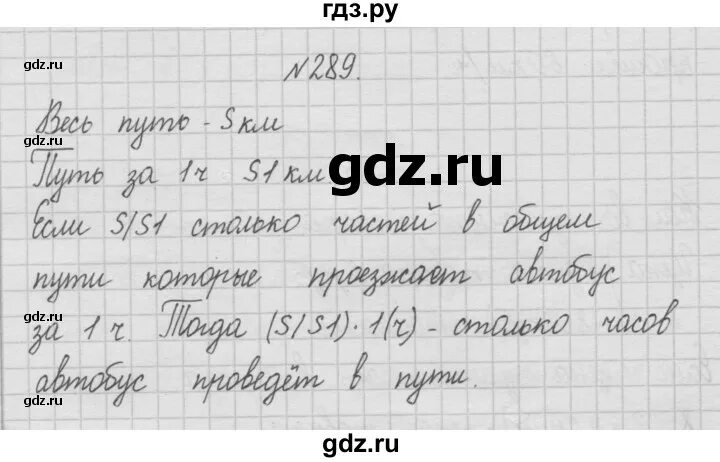 гдз.ру
gdz.ru
gdz.ru
№289.
Весь путь - S км
gdz.ru
Путь за 1ч S1 км
gdz.ru
gdz.ru
Если S/S1 столько частей в общем
пути которые проезжает автобус
gdz.ru
gdz.ru
за 1 ч. Тогда (S/S1)·1(ч) - столько часов
автобус проведёт в пути.
gdz.ru